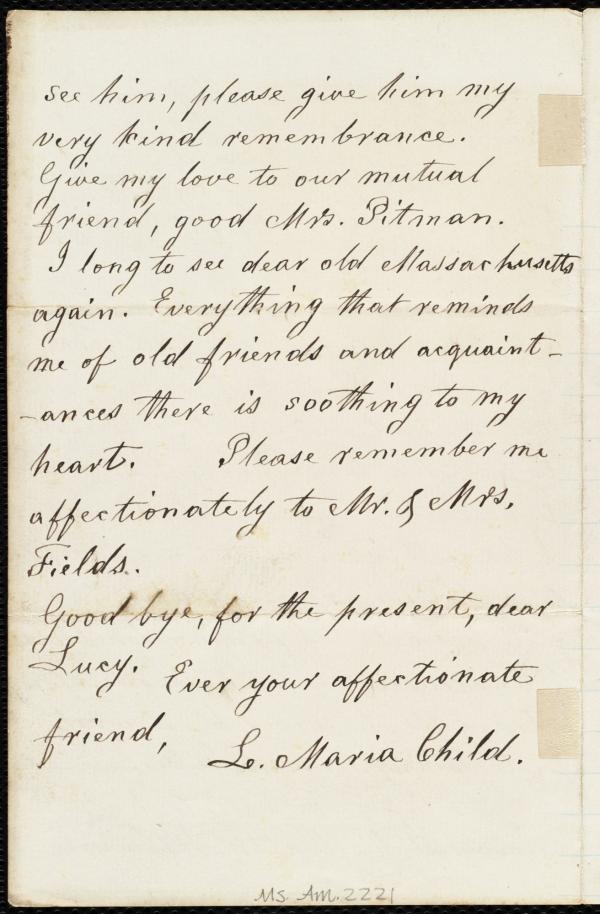 see him, please give him my
very kind remembrance.
Give my love to our mutual
friend, good Mrs. Pitman.
I long to see dear old Massachusetts
again. Everything that reminds
me of old friends and acquaint-
-ances there is soothing to my
heart. Please remember me
affectionately to Mr. & Mrs.
Fields.
Good bye, for the present, dear
Lucy. Ever your affectionate
friend,
L. Maria Child.
Ms. Am. 2221